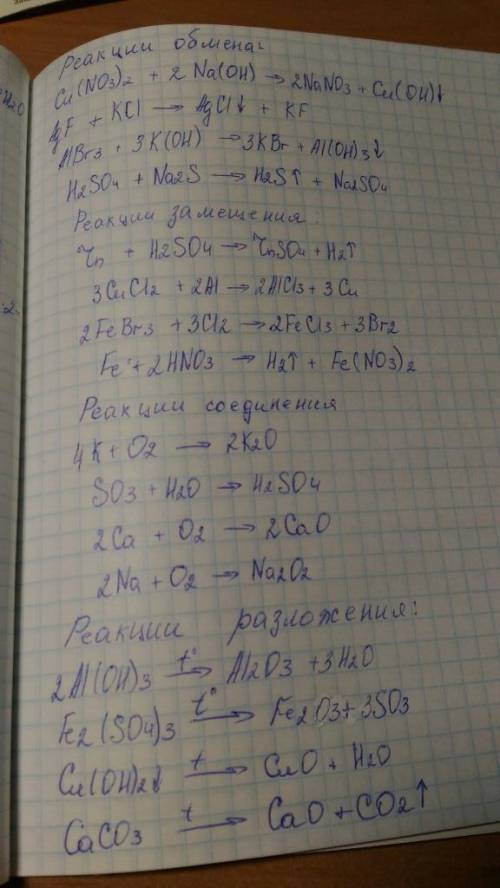 Реакции обмена:
Cu(NO3)2 + 2 Na(OH) → 2NaNO3 + Cu(OH)↓
AgF + KCl → AgCl↓ + KF
AlBr3 + 3K(OH) → 3KBr + Al(OH)3↓
H2SO4 + Na2S → H2S↑ + Na2SO4
Реакции замещения:
Zn + H2SO4 → ZnSO4 + H2↑
3CuCl2 + 2Al → 2AlCl3 + 3Cu
2FeBr3 + 3Cl2 → 2FeCl3 + 3Br2
Fe + 2HNO3 → H2↑ + Fe(NO3)2
Реакции соединения
4K + O2 → 2K2O
SO3 + H2O → H2SO4
2Ca + O2 → 2CaO
2Na + O2 → Na2O2
Реакции разложения:
2Al(OH)3 t°→ Al2O3 + 3H2O
Fe2(SO4)3 t°→ Fe2O3 + 3SO3
Cu(OH)2↓ t→ CuO + H2O
CaCO3 t→ CaO + CO2↑